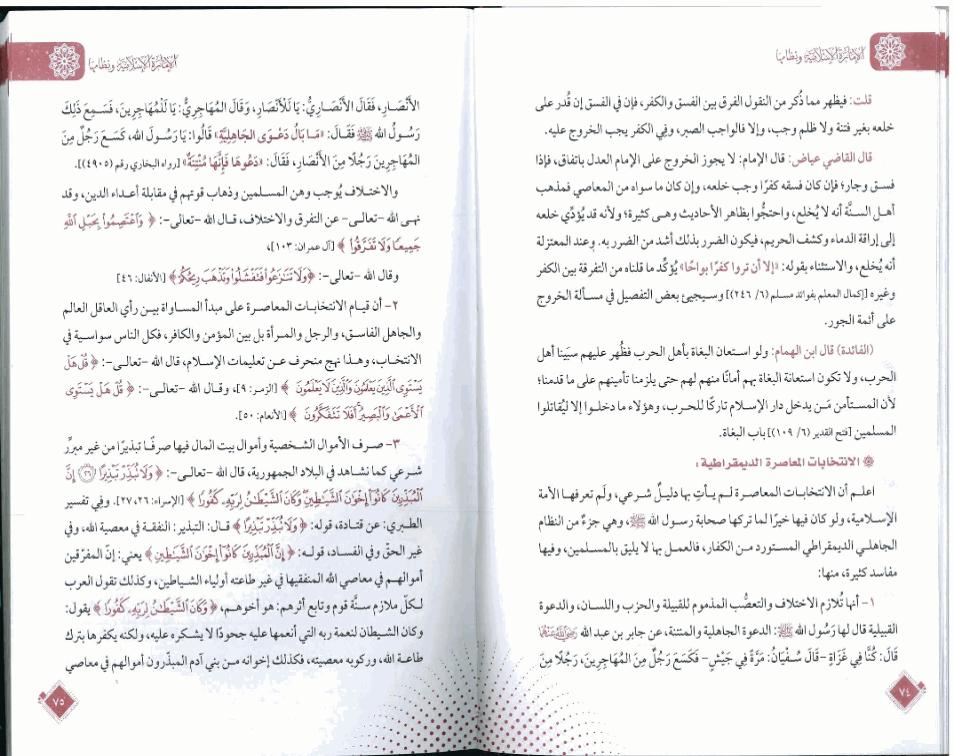 الإمارة الإسلامية ونظامها
قلت: فيظهر مما ذُكر من النقول الفرق بين الفسق والكفر، فإن في الفسق إن قُدر على
خلعه بغير فتنة ولا ظلم وجب، وإلا فالواجب الصبر، وفي الكفر يجب الخروج عليه.
قال القاضي عياض: قال الإمام: لا يجوز الخروج على الإمام العدل باتفاق، فإذا
فسق وجار؛ فإن كان فسقه كفرًا وجب خلعه، وإن كان ما سواه من المعاصي فمذهب
أهل السنَّة أنه لا يُخلع، واحتجُّوا بظاهر الأحاديث وهي كثيرة؛ ولأنه قد يُؤدِّي خلعه
إلى إراقة الدماء وكشف الحريم، فيكون الضرر بذلك أشد من الضرر به. وعند المعتزلة
أنه يُخلع، والاستثناء بقوله: «إلا أن تروا كفرًا بواحًا» يُؤكِّد ما قلناه من التفرقة بين الكفر
وغيره [إكمال المعلم بفوائد مسلم (٦/ ٢٤٦)] وسيجيئ بعض التفصيل في مسألة الخروج
على أئمة الجور.
(الفائدة) قال ابن الهمام: ولو استعان البغاة بأهل الحرب فظُهر عليهم سبَينا أهل
الحرب، ولا تكون استعانة البغاة بهم أمانًا منهم لهم حتى يلزمنا تأمينهم على ما قدمنا؛
لأن المستأمن مَن يدخل دار الإسلام تاركًا للحرب، وهؤلاء ما دخلوا إلا ليُقاتلوا
المسلمين [فتح القدير (٦/ ١٠٩)] باب البغاة.
الانتخابات المعاصرة الديمقراطية:
اعلم أن الانتخابات المعاصرة لم يأتِ بها دليلٌ شرعي، ولَم تعرفها الأمة
الإسلامية، ولو كان فيها خيرًا لما تركها صحابة رسول الله ﷺ، وهي جزءٌ من النظام
الجاهلي الديمقراطي المستورد من الكفار، فالعمل بها لا يليق بالمسلمين، وفيها
مفاسد كثيرة، منها:
١- أنها تُلازم الاختلاف والتعصُّب المذموم للقبيلة والحزب واللسان، والدعوة
القبيلية قال لها رَسُول الله ﷺ: الدعوة الجاهلية والمنتنة، عن جابر بن عبد الله رضي الله عنهما
قَالَ: كُنَّا فِي غَزَاةٍ -قَالَ سُفْيَانُ: مَرَّةً فِي جَيْشٍ- فَكَسَعَ رَجُلٌ مِنَ المُهَاجِرِينَ، رَجُلًا مِنَ
٧٤
الإمارة الإسلامية ونظامها
الأَنْصَارِ، فَقَالَ الأَنْصَارِيُّ: يَا لَلْأَنْصَارِ، وَقَالَ المُهَاجِرِيُّ: يَا لَلْمُهَاجِرِينَ، فَسَمِعَ ذَلِكَ
رَسُولُ اللهِ ﷺ فَقَالَ: «مَا بَالُ دَعْوَى الجَاهِلِيَّةِ» قَالُوا: يَا رَسُولَ الله، كَسَعَ رَجُلٌ مِنَ
المُهَاجِرِينَ رَجُلًا مِنَ الأَنْصَارِ، فَقَالَ: «دَعُوهَا فَإِنَّهَا مُنْتِنَةٌ» [رواه البخاري رقم (٤٩٠٥)].
والاختلاف يُوجب وهن المسلمين وذهاب قوتهم في مقابلة أعداء الدين، وقد
نهى الله -تعالى- عن التفرق والاختلاف، قال الله -تعالى-: ﴿ وَٱعْتَصِمُوا۟ بِحَبْلِ ٱللَّهِ
جَمِيعًا وَلَا تَفَرَّقُوا۟ ﴾ [آل عمران: ١٠٣]،
وقال الله -تعالى-: ﴿وَلَا تَنَٰزَعُوا۟ فَتَفْشَلُوا۟ وَتَذْهَبَ رِيحُكُمْ﴾ [الأنفال: ٤٦]
٢- أن قيام الانتخابات المعاصرة على مبدأ المساواة بين رأي العاقل العالم
والجاهل الفاسق، والرجل والمرأة بل بين المؤمن والكافر، فكل الناس سواسية في
الانتخاب، وهذا نهج منحرف عن تعليمات الإسلام، قال الله -تعالى-: ﴿ قُلْ هَلْ
يَسْتَوِى ٱلَّذِينَ يَعْلَمُونَ وَٱلَّذِينَ لَا يَعْلَمُونَ ﴾ [الزمر: ٩]، وقال الله -تعالى-: ﴿ قُلْ هَلْ يَسْتَوِى
ٱلْأَعْمَىٰ وَٱلْبَصِيرُ ۚ أَفَلَا تَتَفَكَّرُونَ ﴾ [الأنعام: ٥٠].
٣- صرف الأموال الشخصية وأموال بيت المال فيها صرفًا تبذيرًا من غير مبرِّر
شرعي كما نشاهد في البلاد الجمهورية، قال الله -تعالى-: ﴿ وَلَا تُبَذِّرْ تَبْذِيرًا ۝٢٦ إِنَّ
ٱلْمُبَذِّرِينَ كَانُوٓا۟ إِخْوَٰنَ ٱلشَّيَٰطِينِ ۖ وَكَانَ ٱلشَّيْطَٰنُ لِرَبِّهِۦ كَفُورًا ﴾ [الإسراء: ٢٦، ٢٧]. وفي تفسير
الطبري: عن قتادة، قوله: ﴿ وَلَا تُبَذِّرْ تَبْذِيرًا ﴾ قال: التبذير: النفقة في معصية الله، وفي
غير الحقّ وفي الفساد، قوله: ﴿ إِنَّ ٱلْمُبَذِّرِينَ كَانُوٓا۟ إِخْوَٰنَ ٱلشَّيَٰطِينِ ﴾ يعني: إنّ المفرِّقين
أموالهم في معاصي الله المنفقيها في غير طاعته أولياء الشياطين، وكذلك تقول العرب
لكلّ ملازم سنَّة قوم وتابع أثرهم: هو أخوهم، ﴿ وَكَانَ ٱلشَّيْطَٰنُ لِرَبِّهِۦ كَفُورًا ﴾ يقول:
وكان الشيطان لنعمة ربه التي أنعمها عليه جحودًا لا يشكره عليه، ولكنه يكفرها بترك
طاعة الله، وركوبه معصيته، فكذلك إخوانه من بني آدم المبذّرون أموالهم في معاصي
٧٥